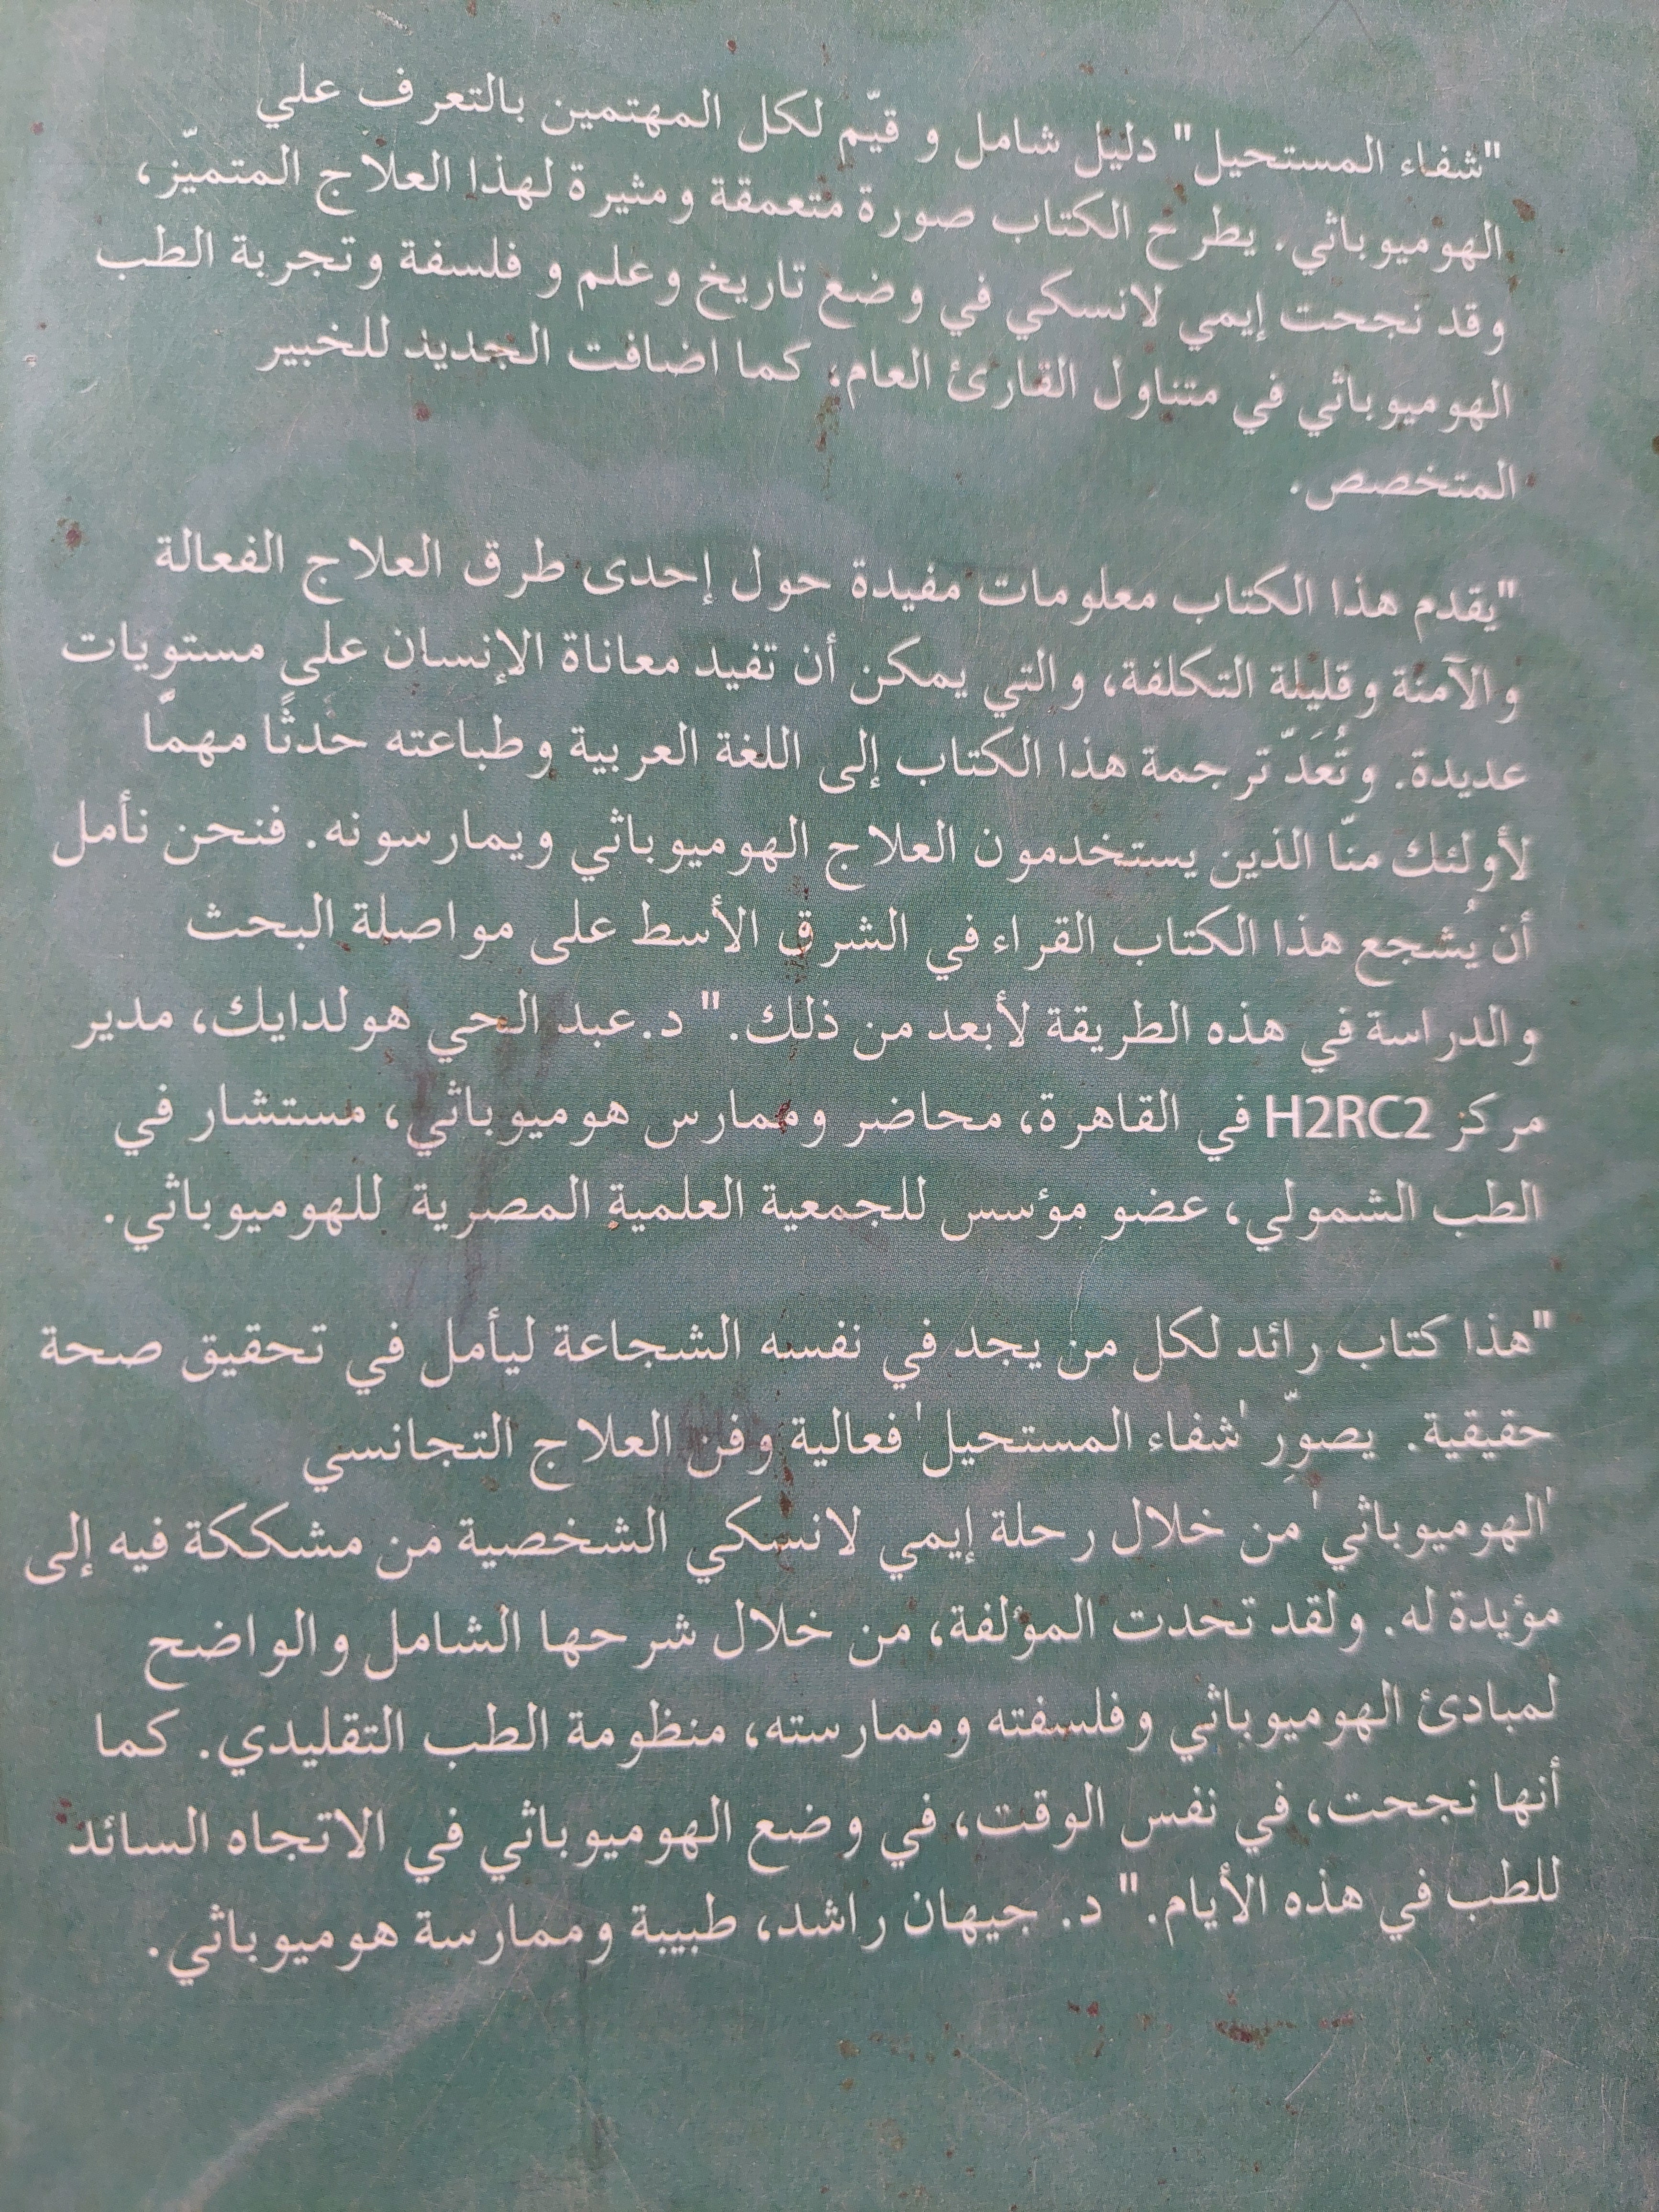 "شفاء المستحيل" دليل شامل و قيّم لكل المهتمين بالتعرف علي
الهوميوباثي. يطرح الكتاب صورة متعمقة ومثيرة لهذا العلاج المتميّز،
وقد نجحت إيمي لانسكي في وضع تاريخ وعلم و فلسفة وتجربة الطب
الهوميوباثي في متناول القارئ العام، كما اضافت الجديد للخبير
المتخصص.
"يقدم هذا الكتاب معلومات مفيدة حول إحدى طرق العلاج الفعالة
والآمنة وقليلة التكلفة، والتي يمكن أن تفيد معاناة الإنسان على مستويات
عديدة. وتُعَدّ ترجمة هذا الكتاب إلى اللغة العربية وطباعته حدثًا مهمًّا
لأولئك منّا الذين يستخدمون العلاج الهوميوباثي ويمارسونه. فنحن نأمل
أن يُشجع هذا الكتاب القراء في الشرق الأسط على مواصلة البحث
والدراسة في هذه الطريقة لأبعد من ذلك." د.عبد الحي هولدايك، مدير
مركز H2RC2 في القاهرة، محاضر وممارس هوميوباثي، مستشار في
الطب الشمولي، عضو مؤسس للجمعية العلمية المصرية للهوميوباثي.
"هذا كتاب رائد لكل من يجد في نفسه الشجاعة ليأمل في تحقيق صحة
حقيقية. يصوِّر 'شفاء المستحيل' فعالية وفن العلاج التجانسي
'الهوميوباثي' من خلال رحلة إيمي لانسكي الشخصية من مشككة فيه إلى
مؤيدة له. ولقد تحدت المؤلفة، من خلال شرحها الشامل والواضح
لمبادئ الهوميوباثي وفلسفته وممارسته، منظومة الطب التقليدي. كما
أنها نجحت، في نفس الوقت، في وضع الهوميوباثي في الاتجاه السائد
للطب في هذه الأيام." د. جيهان راشد، طبيبة وممارسة هوميوباثي.